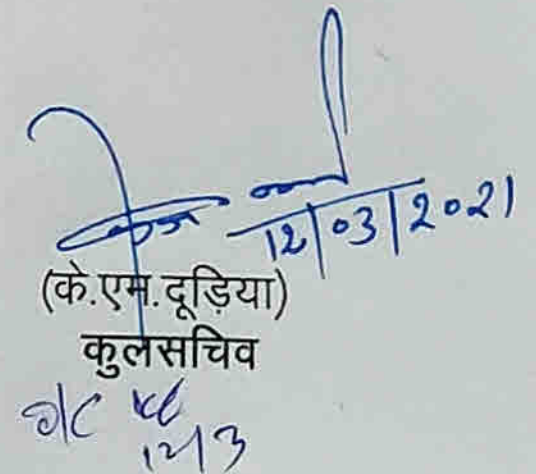 12/03/2021
(के.एम.दूड़िया)
कुलसचिव
12/3